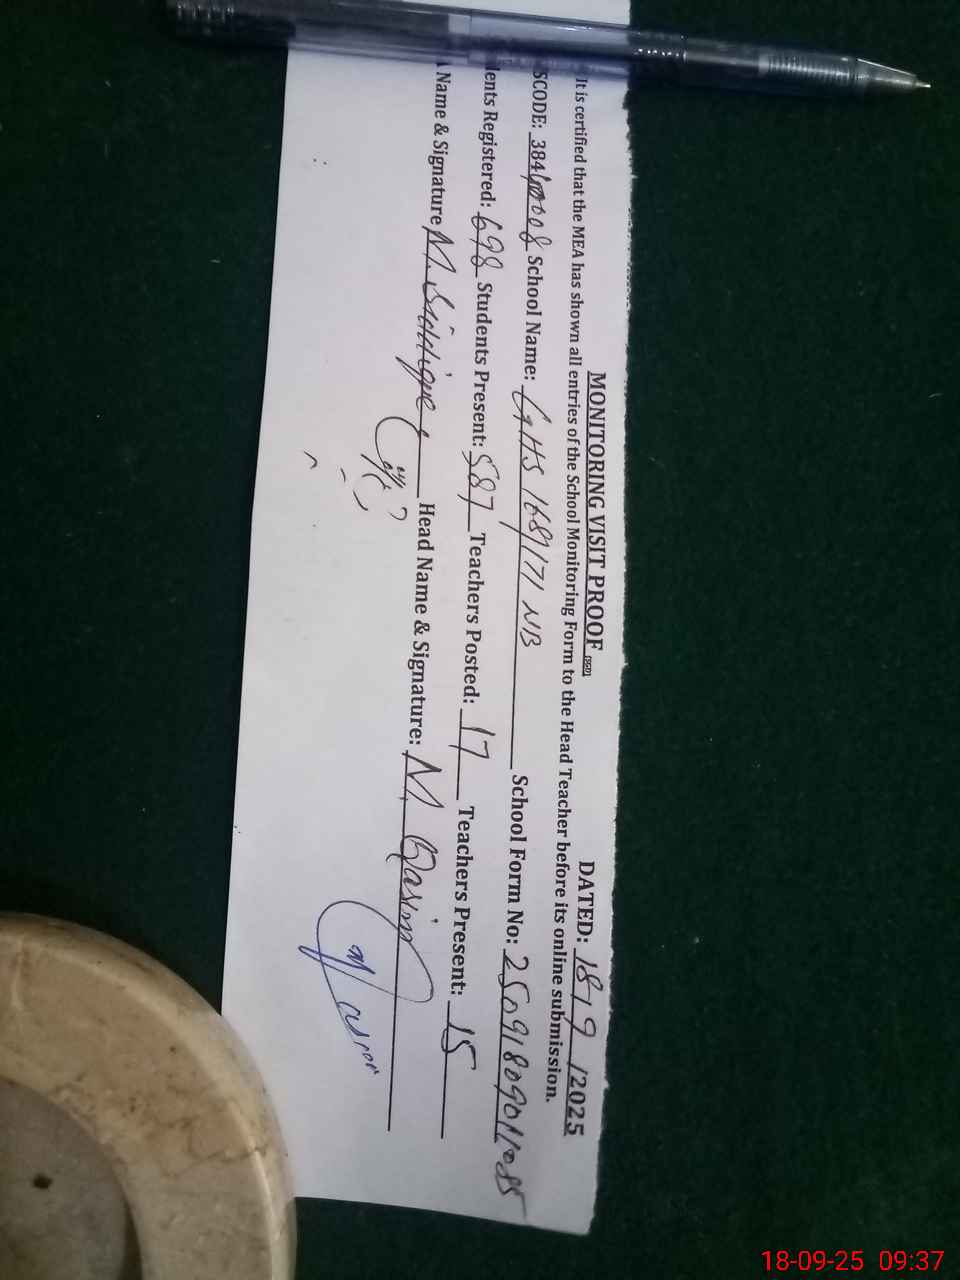 MONITORING VISIT PROOF DATED: 18/9/2025
It is certified that the MEA has shown all entries of the School Monitoring Form to the Head Teacher before its online submission.
SCODE: 38440008 School Name: GHS 168/171 NB School Form No:
ents Registered: 698 Students Present: 587 Teachers Posted: 17 Teachers Present: 15
Name & Signature M. Siddique Head Name & Signature: M. Qasim
18-09-25 09:37